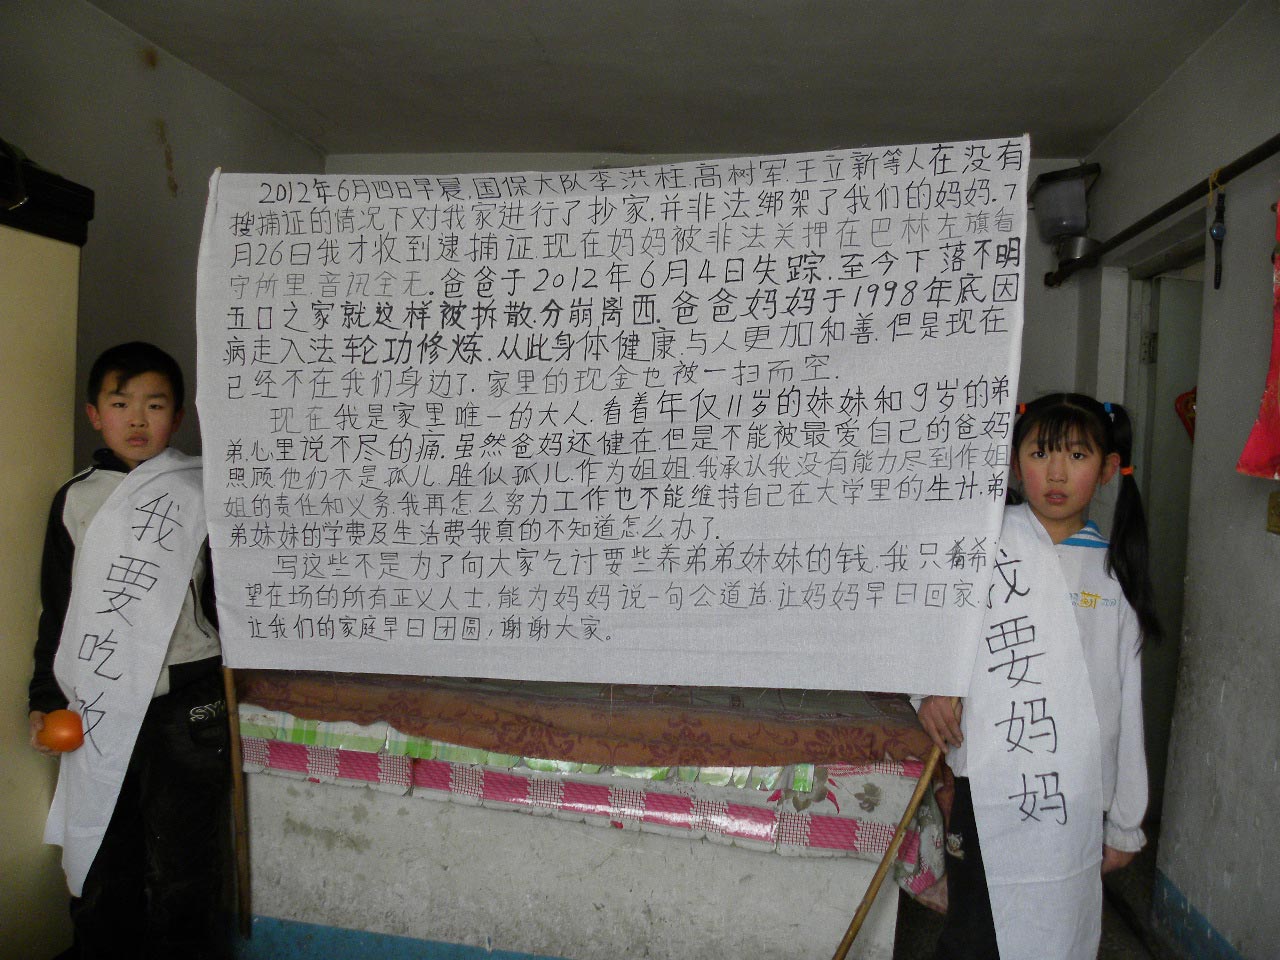 2012年6月四日早晨.国保大队李洪柱高树军王立新等人在没有
搜捕证的情况下对我家进行了抄家.并非法绑架了我们的妈妈.7
月26日我才收到逮捕证.现在妈妈被非法关押在巴林左旗看
守所里.音讯全无.爸爸于2012年6月4日失踪.至今下落不明
五口之家就这样被拆散.分崩离西.爸爸妈妈于1998年底因
病走入法轮功修炼.从此身体健康.与人更加和善.但是现在
已经不在我们身边了.家里的现金也被一扫而空.
现在我是家里唯一的大人.看着年仅11岁的妹妹和9岁的弟
弟.心里说不尽的痛.虽然爸妈还健在.但是不能被最爱自己的爸妈
照顾.他们不是孤儿.胜似孤儿.作为姐姐.我承认我没有能力尽到作姐
姐的责任和义务.我再怎么努力工作也不能维持自己在大学里的生计.弟
弟妹妹的学费及生活费我真的不知道怎么办了.
写这些不是为了向大家乞讨要些养弟弟妹妹的钱.我只希
望在场的所有正义人士.能为妈妈说一句公道话.让妈妈早日回家.
让我们的家庭早日团圆,谢谢大家。
我要吃饭
我要妈妈